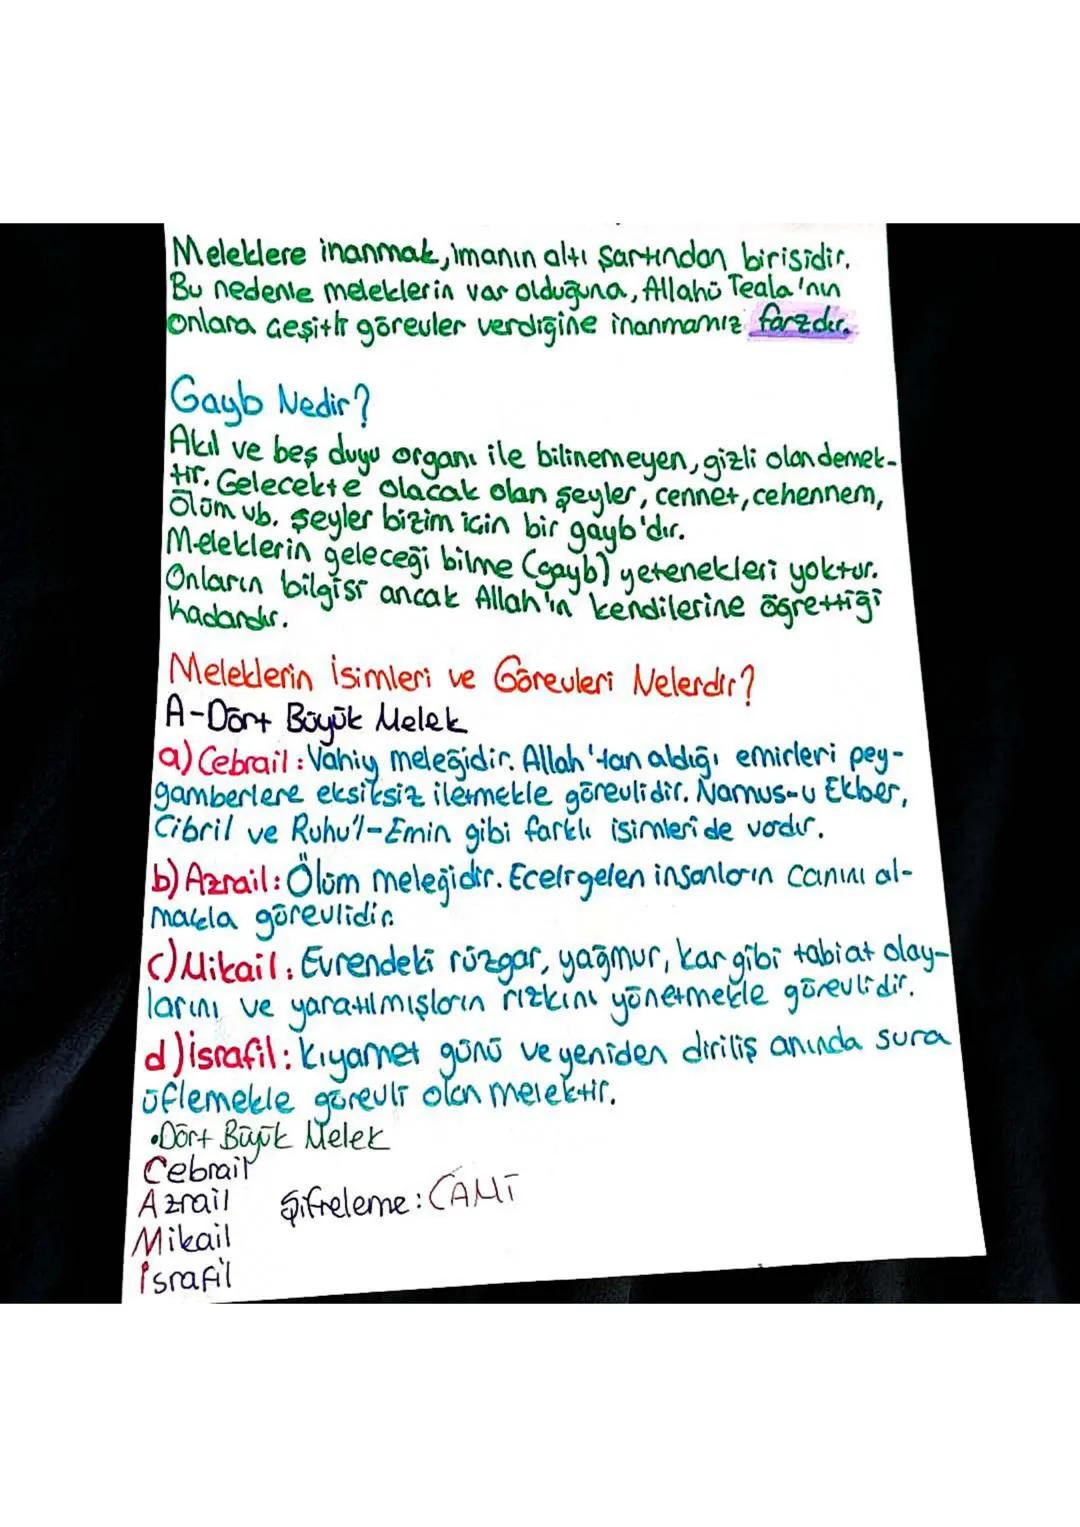 Meleklere inanmak, imanın altı şartından birisidir.
Bu nedenle meleklerin var olduğuna, Allahü Teala'nın
onlara çeşitli görevler verdiğine inanmamız farzdır.
Gayb Nedir?
Akıl ve beş duyu organı ile bilinemeyen, gizli olan demek-
tir. Gelecekte olacak olan şeyler, cennet, cehennem,
ölüm vb. şeyler bizim için bir gayb'dır.
Meleklerin geleceği bilme (gayb) yetenekleri yoktur.
Onların bilgisi ancak Allah'ın kendilerine öğrettiği
kadardır.
Meleklerin İsimleri ve Görevleri Nelerdir?
A-Dört Büyük Melek
a) Cebrail: Vahiy meleğidir. Allah'tan aldığı emirleri pey-
gamberlere eksiksiz iletmekle görevlidir. Namus-u Ekber,
Cibril ve Ruhu'l-Emin gibi farklı isimleri de vardır.
b) Azrail: Ölüm meleğidir. Eceli gelen insanların canını al-
makla görevlidir.
c) Mikail: Evrendeki rüzgar, yağmur, kar gibi tabiat olay-
larını ve yaratılmışların rızkını yönetmekle görevlidir.
d) İsrafil: Kıyamet günü ve yeniden diriliş anında sura
üflemekle görevli olan melektir.
•Dört Büyük Melek
Cebrail
Azrail Şifreleme: CAMİ
Mikail
İsrafil